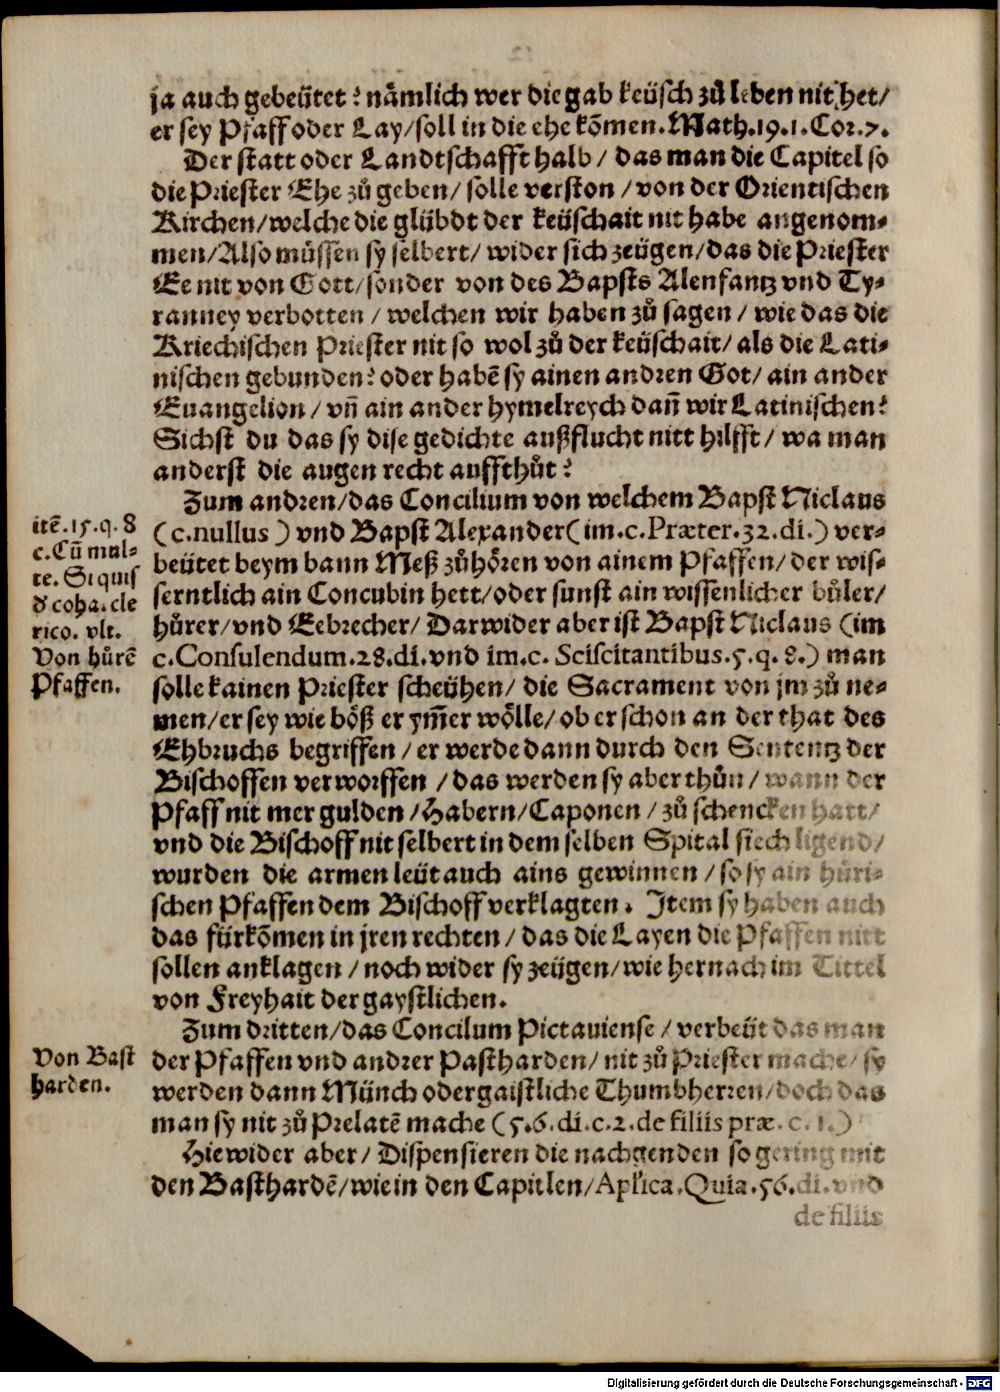 ja auch gebeütet? nämlich wer die gab keüsch zů leben nit het/
er sey Pfaff oder Lay/soll in die ehe kõmen. Math.19.1.Cor.7.
Der statt oder Landtschafft halb/ das man die Capitel so
die Priester Ehe zů geben/ solle verston /von der Orientischen
Kirchen/welche die glübdt der keüschait nit habe angenom-
men/Also müssen sy selbert/ wider sich zeügen/das die Priester
Ee nit von Gott/sonder von des Bapsts Alenfantz vnd Ty-
ranney verbotten / welchen wir haben zů sagen / wie das die
Kriechischen Priester nit so wol zů der keüschait/ als die Lati-
nischen gebunden? oder habẽ sy ainen andren Got/ ain ander
Euangelion / vñ ain ander hymelreych dañ wir Latinischen?
Sichst du das sy dise gedichte außflucht nitt hilfft/ wa man
anderst die augen recht auffthůt?
Zum andren/das Concilium von welchem Bapst Niclaus
(c.nullus) vnd Bapst Alexander( im.c.Præter.32.di.) ver-
beütet beym bann Meß zůhören von ainem Pfaffen/ der wis-
serntlich ain Concubin hett/oder sunst ain wissenlicher bůler/
hůrer/vnd Eebrecher/ Darwider aber ist Bapst Niclaus (im
c.Consulendum.28.di.vnd im.c. Sciscitantibus.5.q.8.) man
solle kainen Priester scheühen/ die Sacrament von jm zů ne-
men/er sey wie böß er ym̃er wölle/ ob er schon an der that des
Ehbruchs begriffen / er werde dann durch den Sententz der
Bischoffen verworffen / das werden sy aber thůn/ wann der
Pfaff nit mer gulden /Habern/Caponen / zů schencken hatt/
vnd die Bischoff nit selbert in dem selben Spital siech ligend/
wurden die armen leüt auch ains gewinnen / so sy ain hůri-
schen Pfaffen dem Bischoff verklagten. Item sy haben auch
das fürkõmen in jren rechten / das die Layen die Pfaffen nitt
sollen anklagen / noch wider sy zeügen/wie hernach im Tittel
von Freyhait der gaystlichen.
Zum dritten/das Concilum Pictauiense / verbeüt das man
der Pfaffen vnd andrer Pastharden/ nit zů Priester mache/ sy
werden dann Münch oder gaistliche Thumbherren/doch das
man sy nit zů Prelatẽ mache (5.6.di.c.2.de filiis præ.c.1.)
Hiewider aber/ Dispensieren die nachgenden so gering mit
den Basthardẽ/wie in den Capitlen/Apľica.Quia.56.di.vnd
de filiis
itẽ.15.q.8
c.Cũ mul-
te. Si quis
ď coha.cle
rico. vlt.
Von hůrẽ
Pfaffen.
Von Bast
harden.
Digitalisierung gefördert durch die Deutsche Forschungsgemeinschaft - DFG